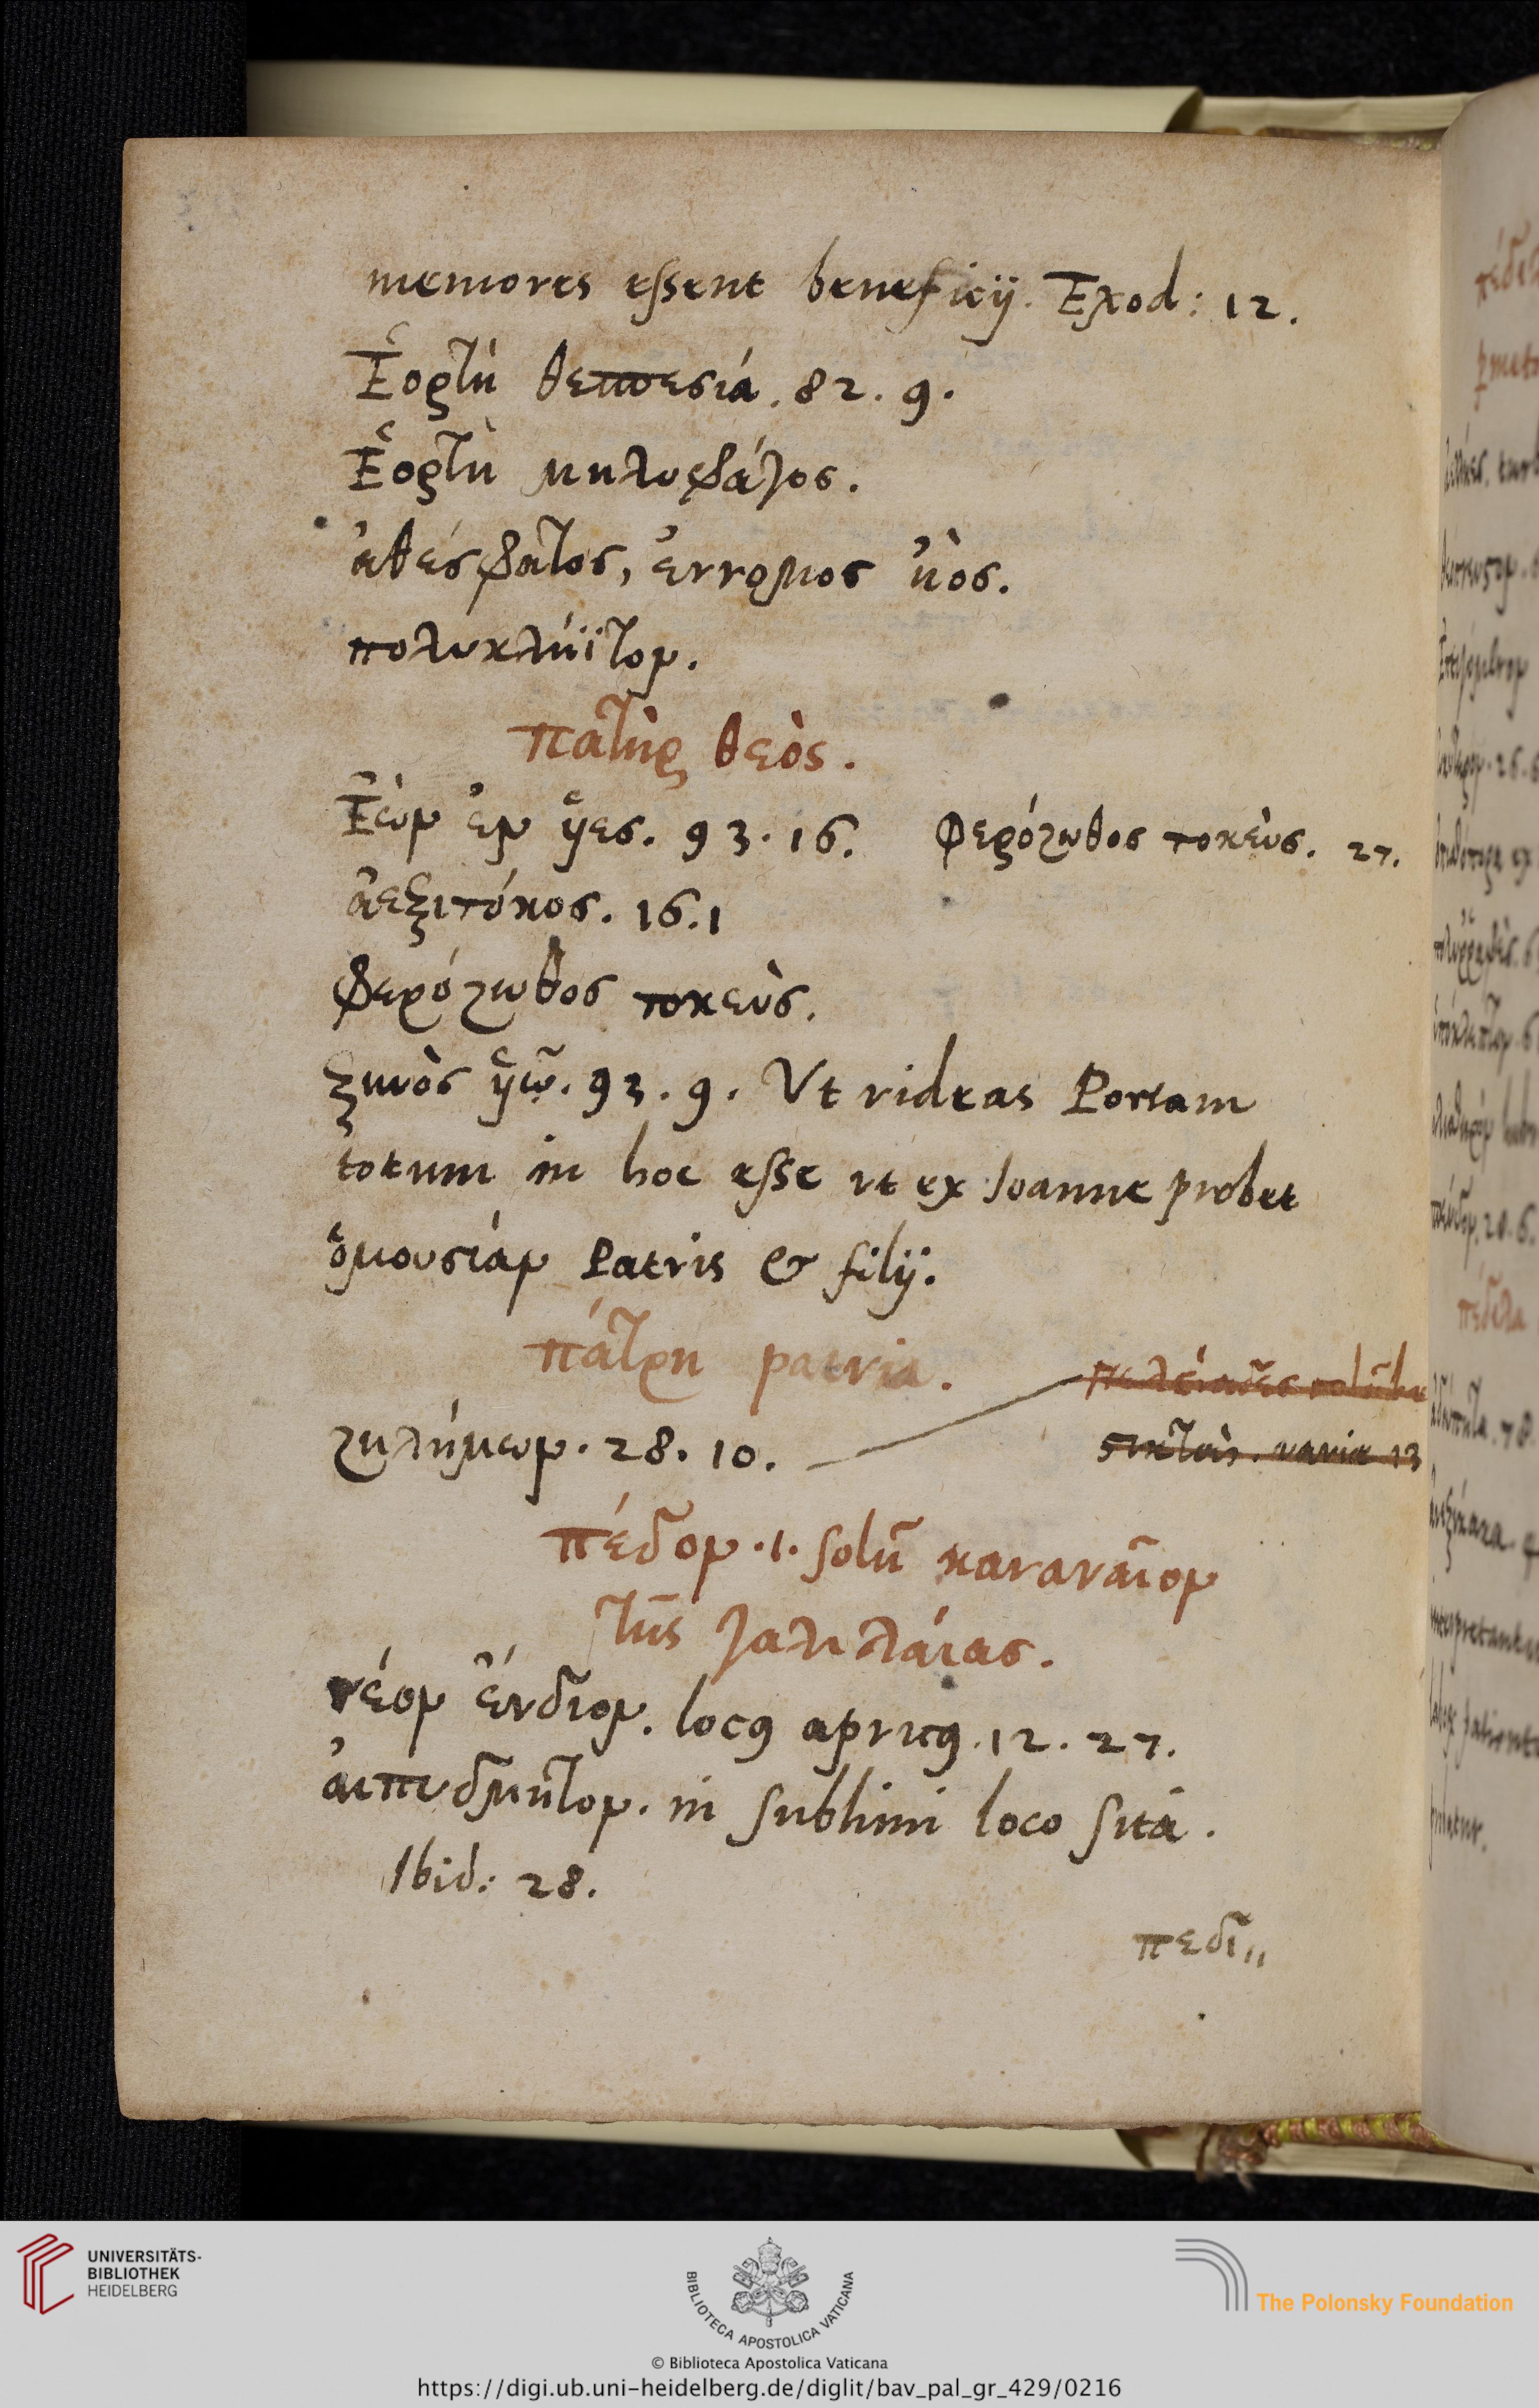 memores essent beneficij. Exod: 12.
Ἑορτὴ θεοπεσιά. 82. 9.
Ἑορτὴ μηλοφάγος.
ἀθέσφατος, ἔννομος ἠὼς.
πολυκλήϊτον.
πατὴρ θεὸς.
Ἐὼν ἐν 93. 16. Φερόζωθος τοκεὺς. 27.
ἀεξιτόκος. 16.1
Φερόζωθος τοκεὺς.
ξυνὸς 93. 9. Vt videas Poetam
totum in hoc esse vt ex Ioanne probet
ὁμουσίαν Patris & filij.
πάτρη patria.
πελειάδες
ζηλήμων. 28. 10.
varia 13
πέδον .1. solū καναναῖον
τῆς γαλιλαίας.
νέον ἔνδιον. locꝰ apricꝰ. 12. 27.
αἰπύδμητον. in sublimi loco sitā.
Ibid: 28.
πεδι,,
UNIVERSITÄTS-
BIBLIOTHEK
HEIDELBERG
BIBLIOTECA APOSTOLICA VATICANA
The Polonsky Foundation
© Biblioteca Apostolica Vaticana
https://digi.ub.uni-heidelberg.de/diglit/bav_pal_gr_429/0216